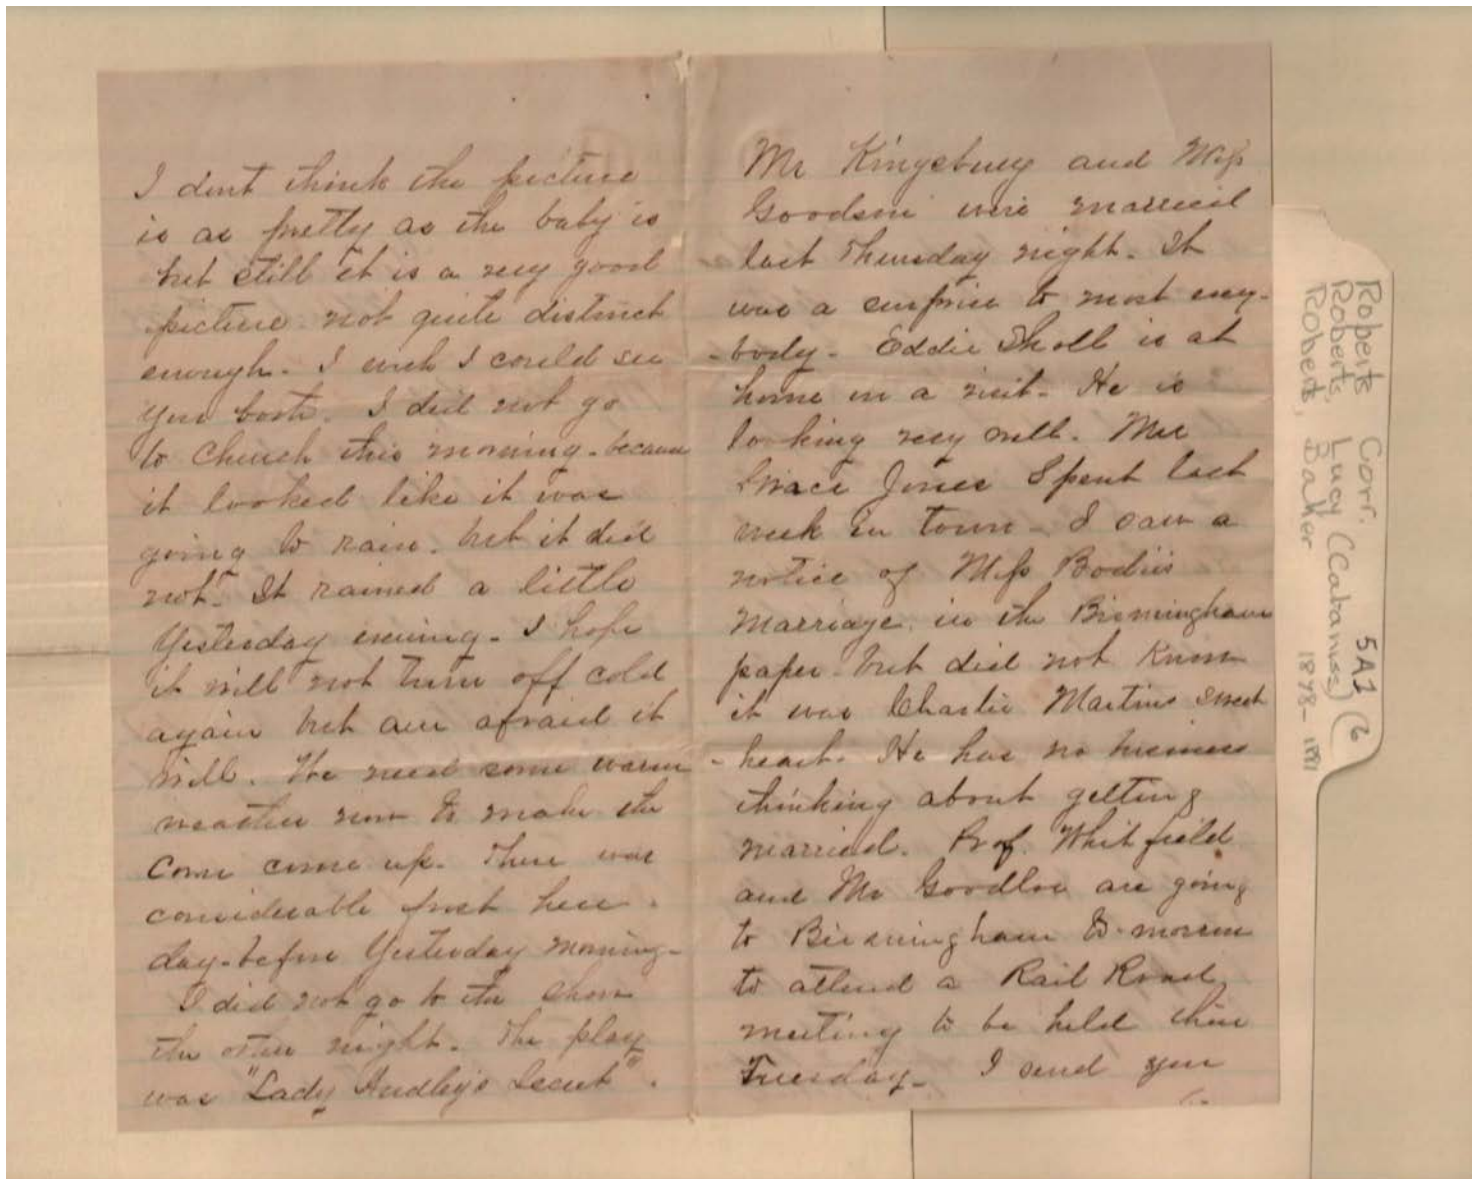 I dont think the picture
is as pretty as the baby is
but still it is a very good
picture not quite distinct
enough. I wish I could see
you both. I did not go
to Church this morning. because
it looked like it was
going to rain. but it did
not. It rained a little
Yesterday evening. I hope
it will not turn off cold
again but am afraid it
will. We need some warm
weather now to make the
Corn come up. There was
considerable frost here.
day-before Yesterday morning-
I did not go to the show
the other night. The play
was "Lady Audley's Secret".
Mr Kingsbury and Miss
were married
last Thursday night. It
was a surprise to most evry-
-body- Eddie Sholl is at
home on a visit- He is
looking very well. Mrs
Grace Jones Spent last
week in town- I saw a
notice of Miss Bodies
Marriage. in the Birmingham
paper- but did not Know
it was Charlie Martins sweet
-heart. He has no business
thinking about getting
married. Prof. Whitfield
and Mr Goodloe are going
to Birmingham to-morrow
to attend a Rail Road
meeting to be held there
Tuesday- I send you
Roberts Corr. 5A1 (6
Roberts, Lucy (Cabaniss)
Roberts, Baker 1878-1881